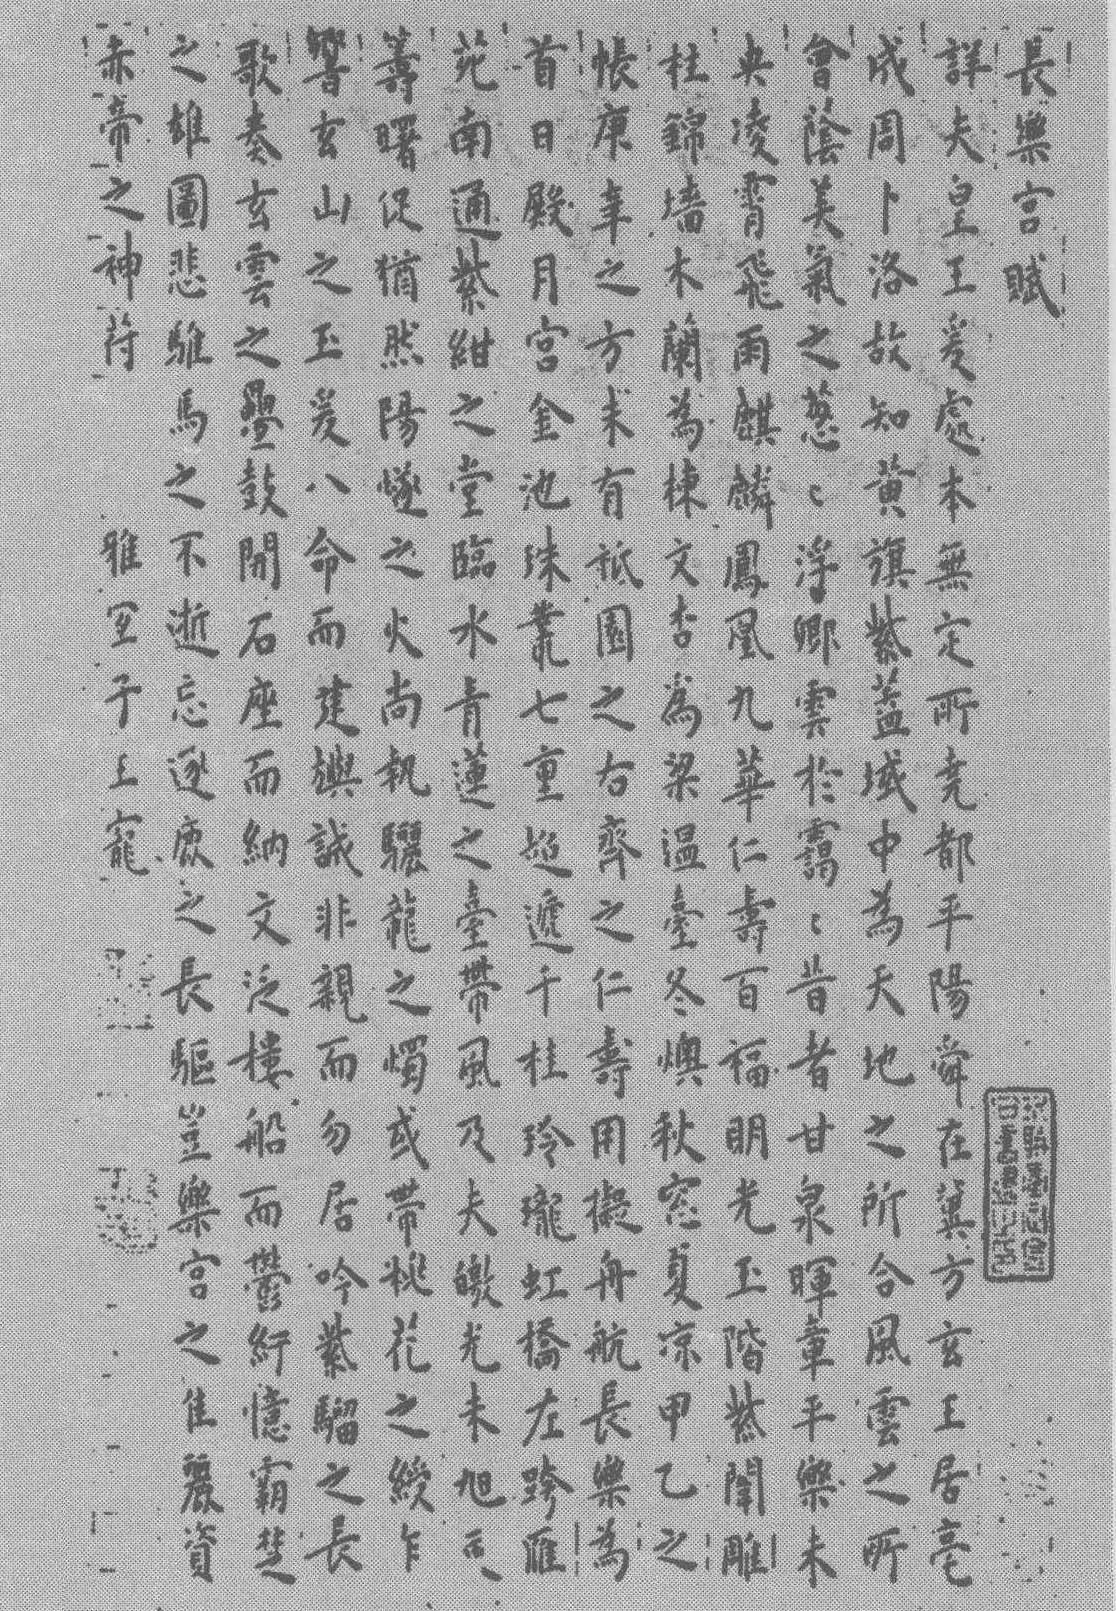 長樂宮賦
詳夫皇王爰處本無定所堯都平陽舜在冀方玄王居亳
成周卜洛故知黃旗紫蓋域中為天地之所合風雲之所
會蔭美氣之葱〻浮卿雲於靄〻昔者甘泉暉章平樂未
央凌霄飛雨麒麟鳳凰九華仁壽百福明光玉階紫闥雕
柱錦墻木蘭為棟文杏為梁溫臺冬燠秋窓夏凉甲乙之
帳庚辛之方未有祗園之右齊之仁壽用擬舟航長樂為
首日殿月宮金池珠叢七重迢遞千桂玲瓏虹橋左跨雁
苑南通紫紺之堂臨水青蓮之臺帶風及夫皦光未旭
籌曙促猶然陽燧之火尚執驪龍之燭或帶桃花之綬乍
響玄山之玉爰八命而建輿誠非親而勿居吟紫騮之長
歌奏玄雲之疊鼓開石座而納文泛樓船而鬱紆憶霸楚
之雄圖悲騅馬之不逝忘逐鹿之長驅豈樂宮之隹麗資
赤帝之神符 雅 于上寵